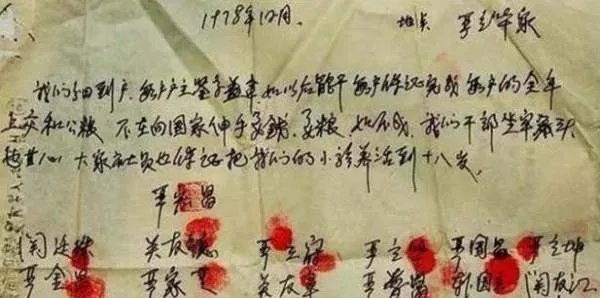 1978年12月。 地点 严立华家
我们分田到户,每户户主签字盖章,如以后能干,每户保证完成每户的全年
上交和公粮 不在向国家伸手要钱要粮 如不成,我们干部坐牢刹头
也甘心,大家社员也保证把我们的小孩养活到十八岁。
严宏昌
关廷珠 关友德 严立符 严立华 严国昌 严立坤
严金昌 严家芝 关友章 严学昌 韩国云 关友江